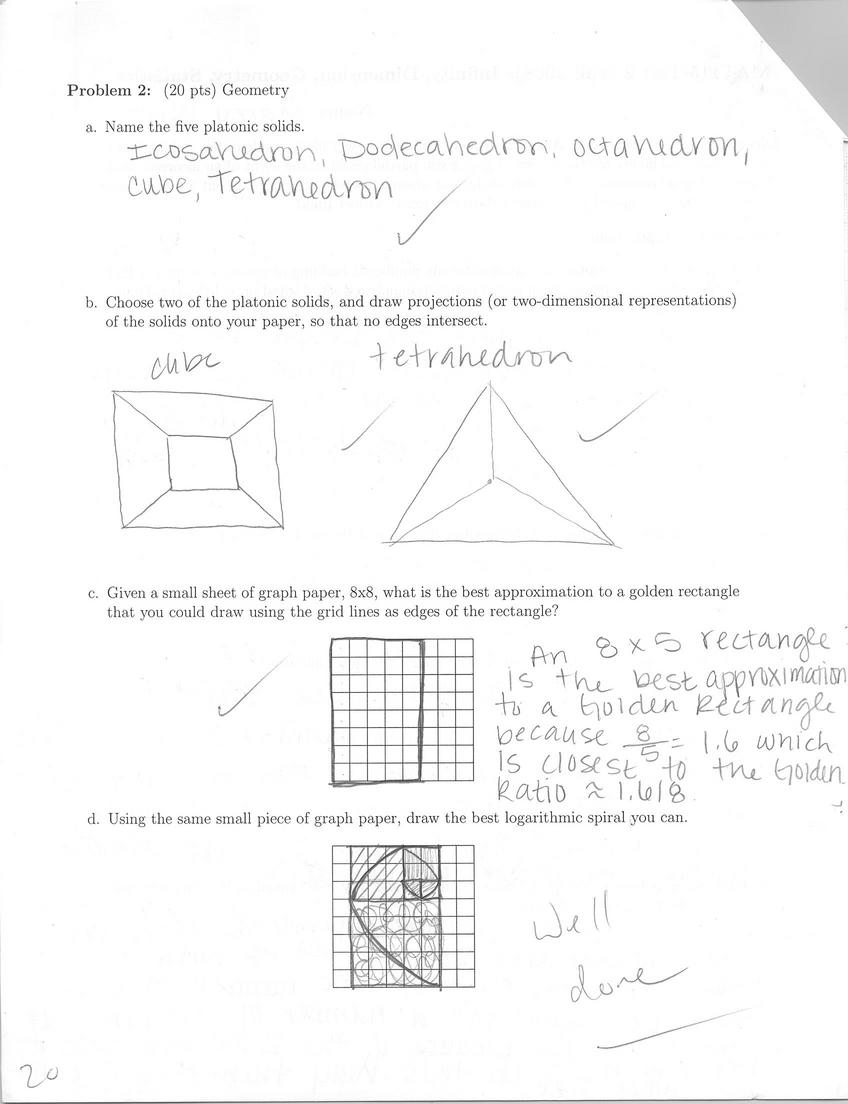 Problem 2: (20 pts) Geometry
a. Name the five platonic solids.
Icosahedron, Dodecahedron, octahedron,
cube, Tetrahedron
b. Choose two of the platonic solids, and draw projections (or two-dimensional representations)
of the solids onto your paper, so that no edges intersect.
cube
tetrahedron
c. Given a small sheet of graph paper, 8x8, what is the best approximation to a golden rectangle
that you could draw using the grid lines as edges of the rectangle?
An 8 x 5 rectangle
is the best approximation
to a Golden Rectangle
because 8/5 = 1.6 which
is closest to the Golden
Ratio ≈ 1.618
d. Using the same small piece of graph paper, draw the best logarithmic spiral you can.
Well
done
20